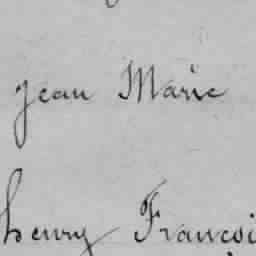 Jean Marie
henry Francoi